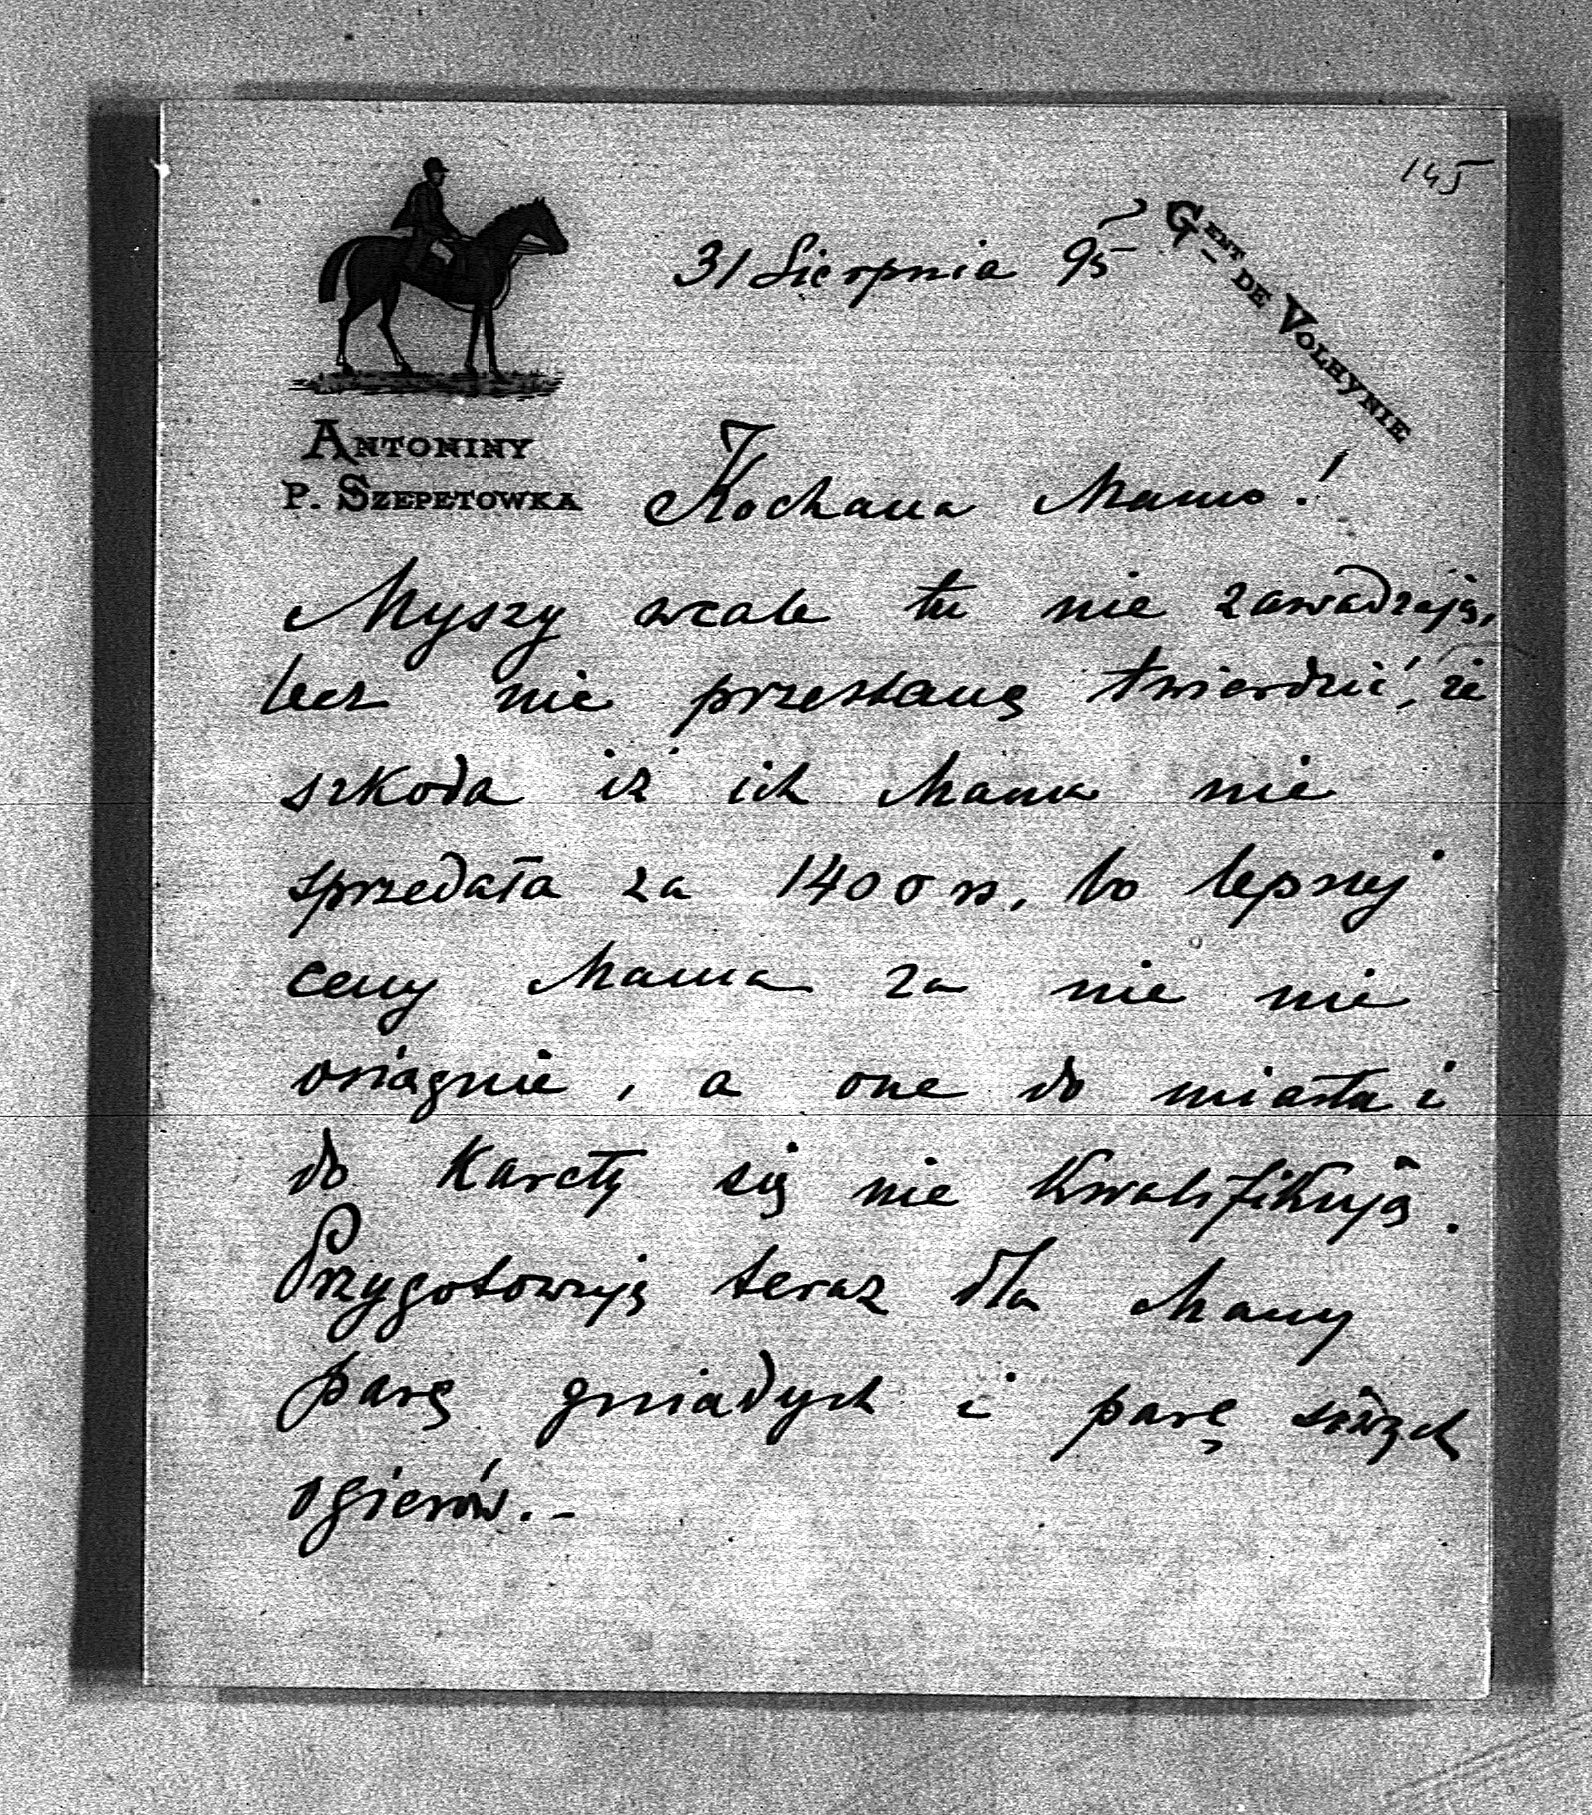 145
31 Sierpnia 95
GENT DE VOLHYNIE
ANTONINY
P. SZEPETOWKA
Kochana Mamo!
Myszy wcale tu nie zawadzają,
lecz nie przestanę twierdzić, że
szkoda iż ich Mama nie
sprzedała za 1400 rs, bo lepszej
ceny Mama za nie nie
osiągnie, a one do miasta i
do karety się nie kwalifikują.
Przygotowuję teraz dla Mamy
parę gniadych i parę siwych
ogierów.-